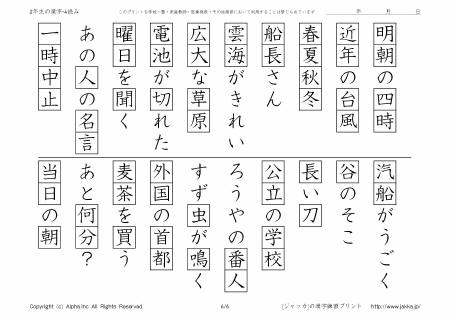 2年生の漢字-4読み
このプリントを学校・塾・家庭教師・医療機関・その他施設において利用することは禁じられています
年 月 日
明朝の四時
近年の台風
春夏秋冬
船長さん
雲海がきれい
広大な草原
電池が切れた
曜日を聞く
あの人の名言
一時中止
汽船がうごく
谷のそこ
長い刀
公立の学校
ろうやの番人
すず虫が鳴く
外国の首都
麦茶を買う
あと何分?
当日の朝
Copyright (c) Alpha.Inc All Rights Reserved.
6/6
[ジャッカ]の漢字練習プリント http://www.jakka.jp/